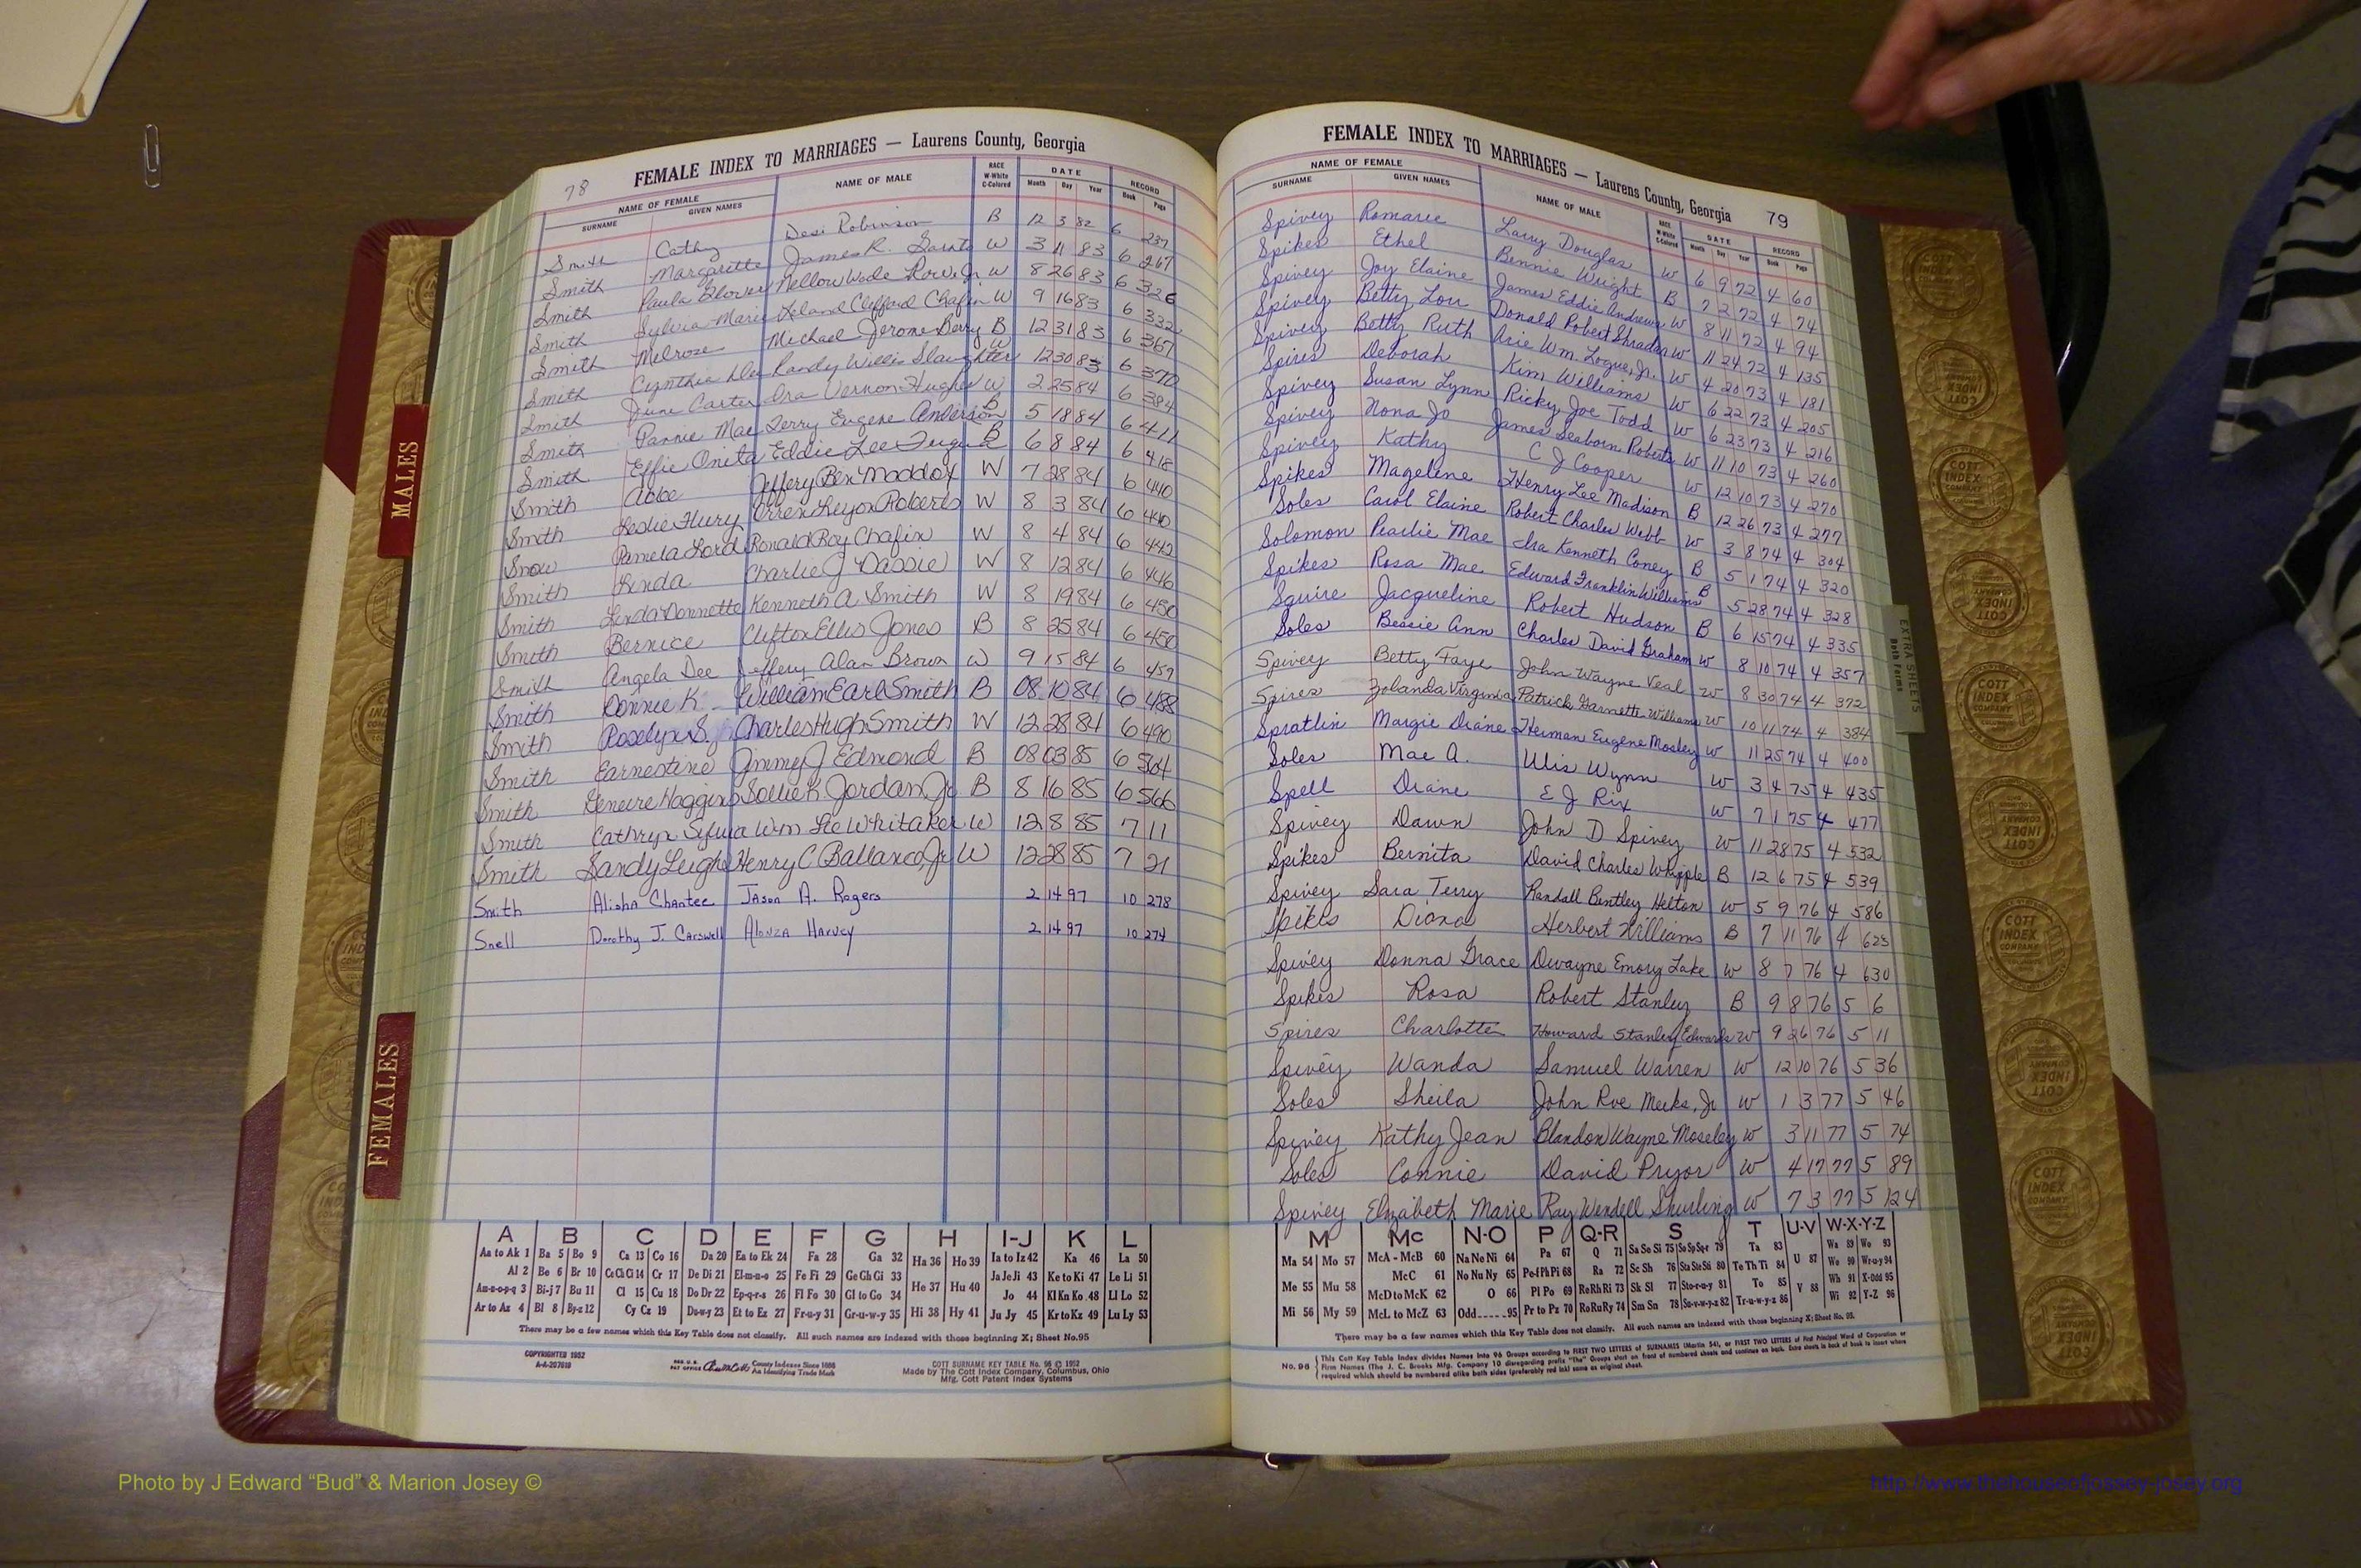 78
FEMALE INDEX TO MARRIAGES — Laurens County, Georgia
NAME OF FEMALE NAME OF MALE RACE W-White C-Colored DATE RECORD
SURNAME GIVEN NAMES Month Day Year Book Page
Smith Cathy Desi Robinson B 12 3 82 6 237
Smith Margarette James R. W 3 11 83 6 267
Smith Paula Wade Rowe Jr W 8 26 83 6 326
Smith Sylvia Marie Leland Clifford Chafin W 9 16 83 6 332
Smith Melrose Michael Jerome Berry B 12 31 83 6 367
Smith Cynthia Randy Willis Slaughter W 12 30 83 6 370
Smith June Carter Ira Vernon Hughes W 2 25 84 6 384
Smith Mae Terry Eugene Anderson B 5 18 84 6 411
Smith Effie Oneta Eddie Lee B 6 8 84 6 418
Smith Abbe Jeffery Ben Maddox W 7 28 84 6 440
Smith Leslie Flury Orren Roberts W 8 3 84 6 440
Snow Pamela Lord Ronald Roy Chafin W 8 4 84 6 442
Smith Linda Charlie J Dassie W 8 12 84 6 446
Smith Linda Donnette Kenneth A Smith W 8 19 84 6 450
Smith Bernice Clifton Ellis Jones B 8 25 84 6 450
Smith Angela Dee Jeffery Alan Brown W 9 15 84 6 459
Smith Donnie K. William Earl Smith B 08 10 84 6 488
Smith Roselyn S. Charles Hugh Smith W 12 28 84 6 490
Smith Earnestine Jimmy J Edmond B 08 03 85 6 564
Smith Geneire Haggins Sollie K Jordan, Jr B 8 16 85 6 566
Smith Cathryn Sylvia Wm Lee Whitaker W 12 8 85 7 11
Smith Sandy Leigh Henry C Ballance, Jr W 12 28 85 7 21
Smith Alisha Chantee Jason A. Rogers 2 14 97 10 278
Snell Dorothy J. Carswell Alonza Harvey 2 14 97 10 274
A B C D E F G H I-J K L
Aa to Ak 1 Ba 5 Bo 9 Ca 13 Co 16 Da 20 Ea to Ek 24 Fa 28 Ga 32 Ha 36 Ho 39 Ia to Iz 42 Ka 46 La 50
Al 2 Be 6 Br 10 Ce Ch Ci 14 Cr 17 De Di 21 El-m-n-o 25 Fe Fi 29 Ge Gh Gi 33 He 37 Hu 40 Ja Je Ji 43 Ke to Ki 47 Le Li 51
Am-n-o-p-q 3 Bi-j 7 Bu 11 Cl 15 Cu 18 Do Dr 22 Ep-q-r-s 26 Fl Fo 30 Gl to Go 34 Jo 44 Kl Kn Ko 48 Ll Lo 52
Ar to Az 4 Bl 8 By-z 12 Cy Cz 19 Du-w-y 23 Et to Ez 27 Fr-u-y 31 Gr-u-w-y 35 Hi 38 Hy 41 Ju Jy 45 Kr to Kz 49 Lu Ly 53
There may be a few names which this Key Table does not classify. All such names are indexed with those beginning X; Sheet No.95
COPYRIGHTED 1952
A-A-207618
REG. U.S. PAT OFFICE County Indexes Since 1888 An Identifying Trade Mark
COTT SURNAME KEY TABLE No. 96 © 1952
Made by The Cott Index Company, Columbus, Ohio
Mfg. Cott Patent Index Systems
FEMALE INDEX TO MARRIAGES — Laurens County, Georgia 79
NAME OF FEMALE NAME OF MALE RACE W-White C-Colored DATE RECORD
SURNAME GIVEN NAMES Month Day Year Book Page
Spivey Romarie Larry Douglas W 6 9 72 4 60
Spikes Ethel Bennie Wright B 7 2 72 4 74
Spivey Joy Elaine James Eddie Andrews W 8 11 72 4 94
Spivey Betty Lou Donald Robert Shrader W 11 24 72 4 135
Spivey Betty Ruth Arie Wm. Logue, Jr. W 4 20 73 4 181
Spires Deborah Kim Williams W 6 22 73 4 205
Spivey Susan Lynn Ricky Joe Todd W 6 23 73 4 216
Spivey Nona Jo James Seaborn Roberts W 11 10 73 4 260
Spivey Kathy C J Cooper W 12 10 73 4 270
Spikes Magelene Henry Lee Madison B 12 26 73 4 277
Soles Carol Elaine Robert Charles Webb W 3 8 74 4 304
Solomon Pearlie Mae Ira Kenneth Coney B 5 1 74 4 320
Spikes Rosa Mae Edward Franklin Williams B 5 28 74 4 328
Squire Jacqueline Robert Hudson B 6 15 74 4 335
Soles Bessie Ann Charles David Graham W 8 10 74 4 357
Spivey Betty Faye John Wayne Veal W 8 30 74 4 372
Spires Yolanda Virginia Patrick Garnette Williams W 10 11 74 4 384
Spratlin Margie Diane Herman Eugene Mosley W 11 25 74 4 400
Soles Mae A. Ulis Wynn W 3 4 75 4 435
Spell Diane E J Rix W 7 1 75 4 477
Spivey Dawn John D Spivey W 11 28 75 4 532
Spikes Bernita David Charles Whipple B 12 6 75 4 539
Spivey Sara Terry Randall Bentley Helton W 5 9 76 4 586
Spikes Diane Herbert Williams B 7 11 76 4 623
Spivey Donna Grace Dwayne Emory Lake W 8 7 76 4 630
Spikes Rosa Robert Stanley B 9 8 76 5 6
Spires Charlotte Howard Stanley Edwards W 9 26 76 5 11
Spivey Wanda Samuel Warren W 12 10 76 5 36
Soles Sheila John Roe Meeks, Jr W 1 3 77 5 46
Spivey Kathy Jean Blandon Wayne Moseley W 3 11 77 5 74
Soles Connie David Pryor W 4 17 77 5 89
Spivey Elizabeth Marie Ray Wendell Shurling W 7 3 77 5 124
M Mc N-O P Q-R S T U-V W-X-Y-Z
Ma 54 Mo 57 McA - McB 60 Na Ne Ni 64 Pa 67 Q 71 Sa Se Si 75 So Sp Sq-r 79 Ta 83 U 87 Wa 89 Wo 93
Me 55 Mu 58 McC 61 No Nu Ny 65 Pe-f Ph Pi 68 Ra 72 Sc Sh 76 Sta Ste Sti 80 Te Th Ti 84 We 90 Wr-u-y 94
McD to McK 62 O 66 Pl Po 69 Re Rh Ri 73 Sk Sl 77 Sto-r-u-y 81 To 85 V 88 Wh 91 X-Odd 95
Mi 56 My 59 McL to McZ 63 Odd 95 Pr to Pz 70 Ro Ru Ry 74 Sm Sn 78 Su-v-w-y-z 82 Tr-u-w-y-z 86 Wi 92 Y-Z 96
There may be a few names which this Key Table does not classify. All such names are indexed with those beginning X; Sheet No. 95.
No. 96 This Cott Key Table Index divides Names into 96 Groups according to FIRST TWO LETTERS of SURNAMES (Martin 54), or FIRST TWO LETTERS of First Principal Word of Corporation or
Firm Names (The J. C. Brooks Mfg. Company 10 disregarding prefix "The" Groups start on front of numbered sheets and continue on back. Extra sheets in back of book to insert where
required which should be numbered alike both sides (preferably red ink) same as original sheet.
MALES
FEMALES
EXTRA SHEETS
Both Forms
COTT INDEX COMPANY
Photo by J Edward “Bud” & Marion Josey ©
http://www.thehouseofjossey-josey.org